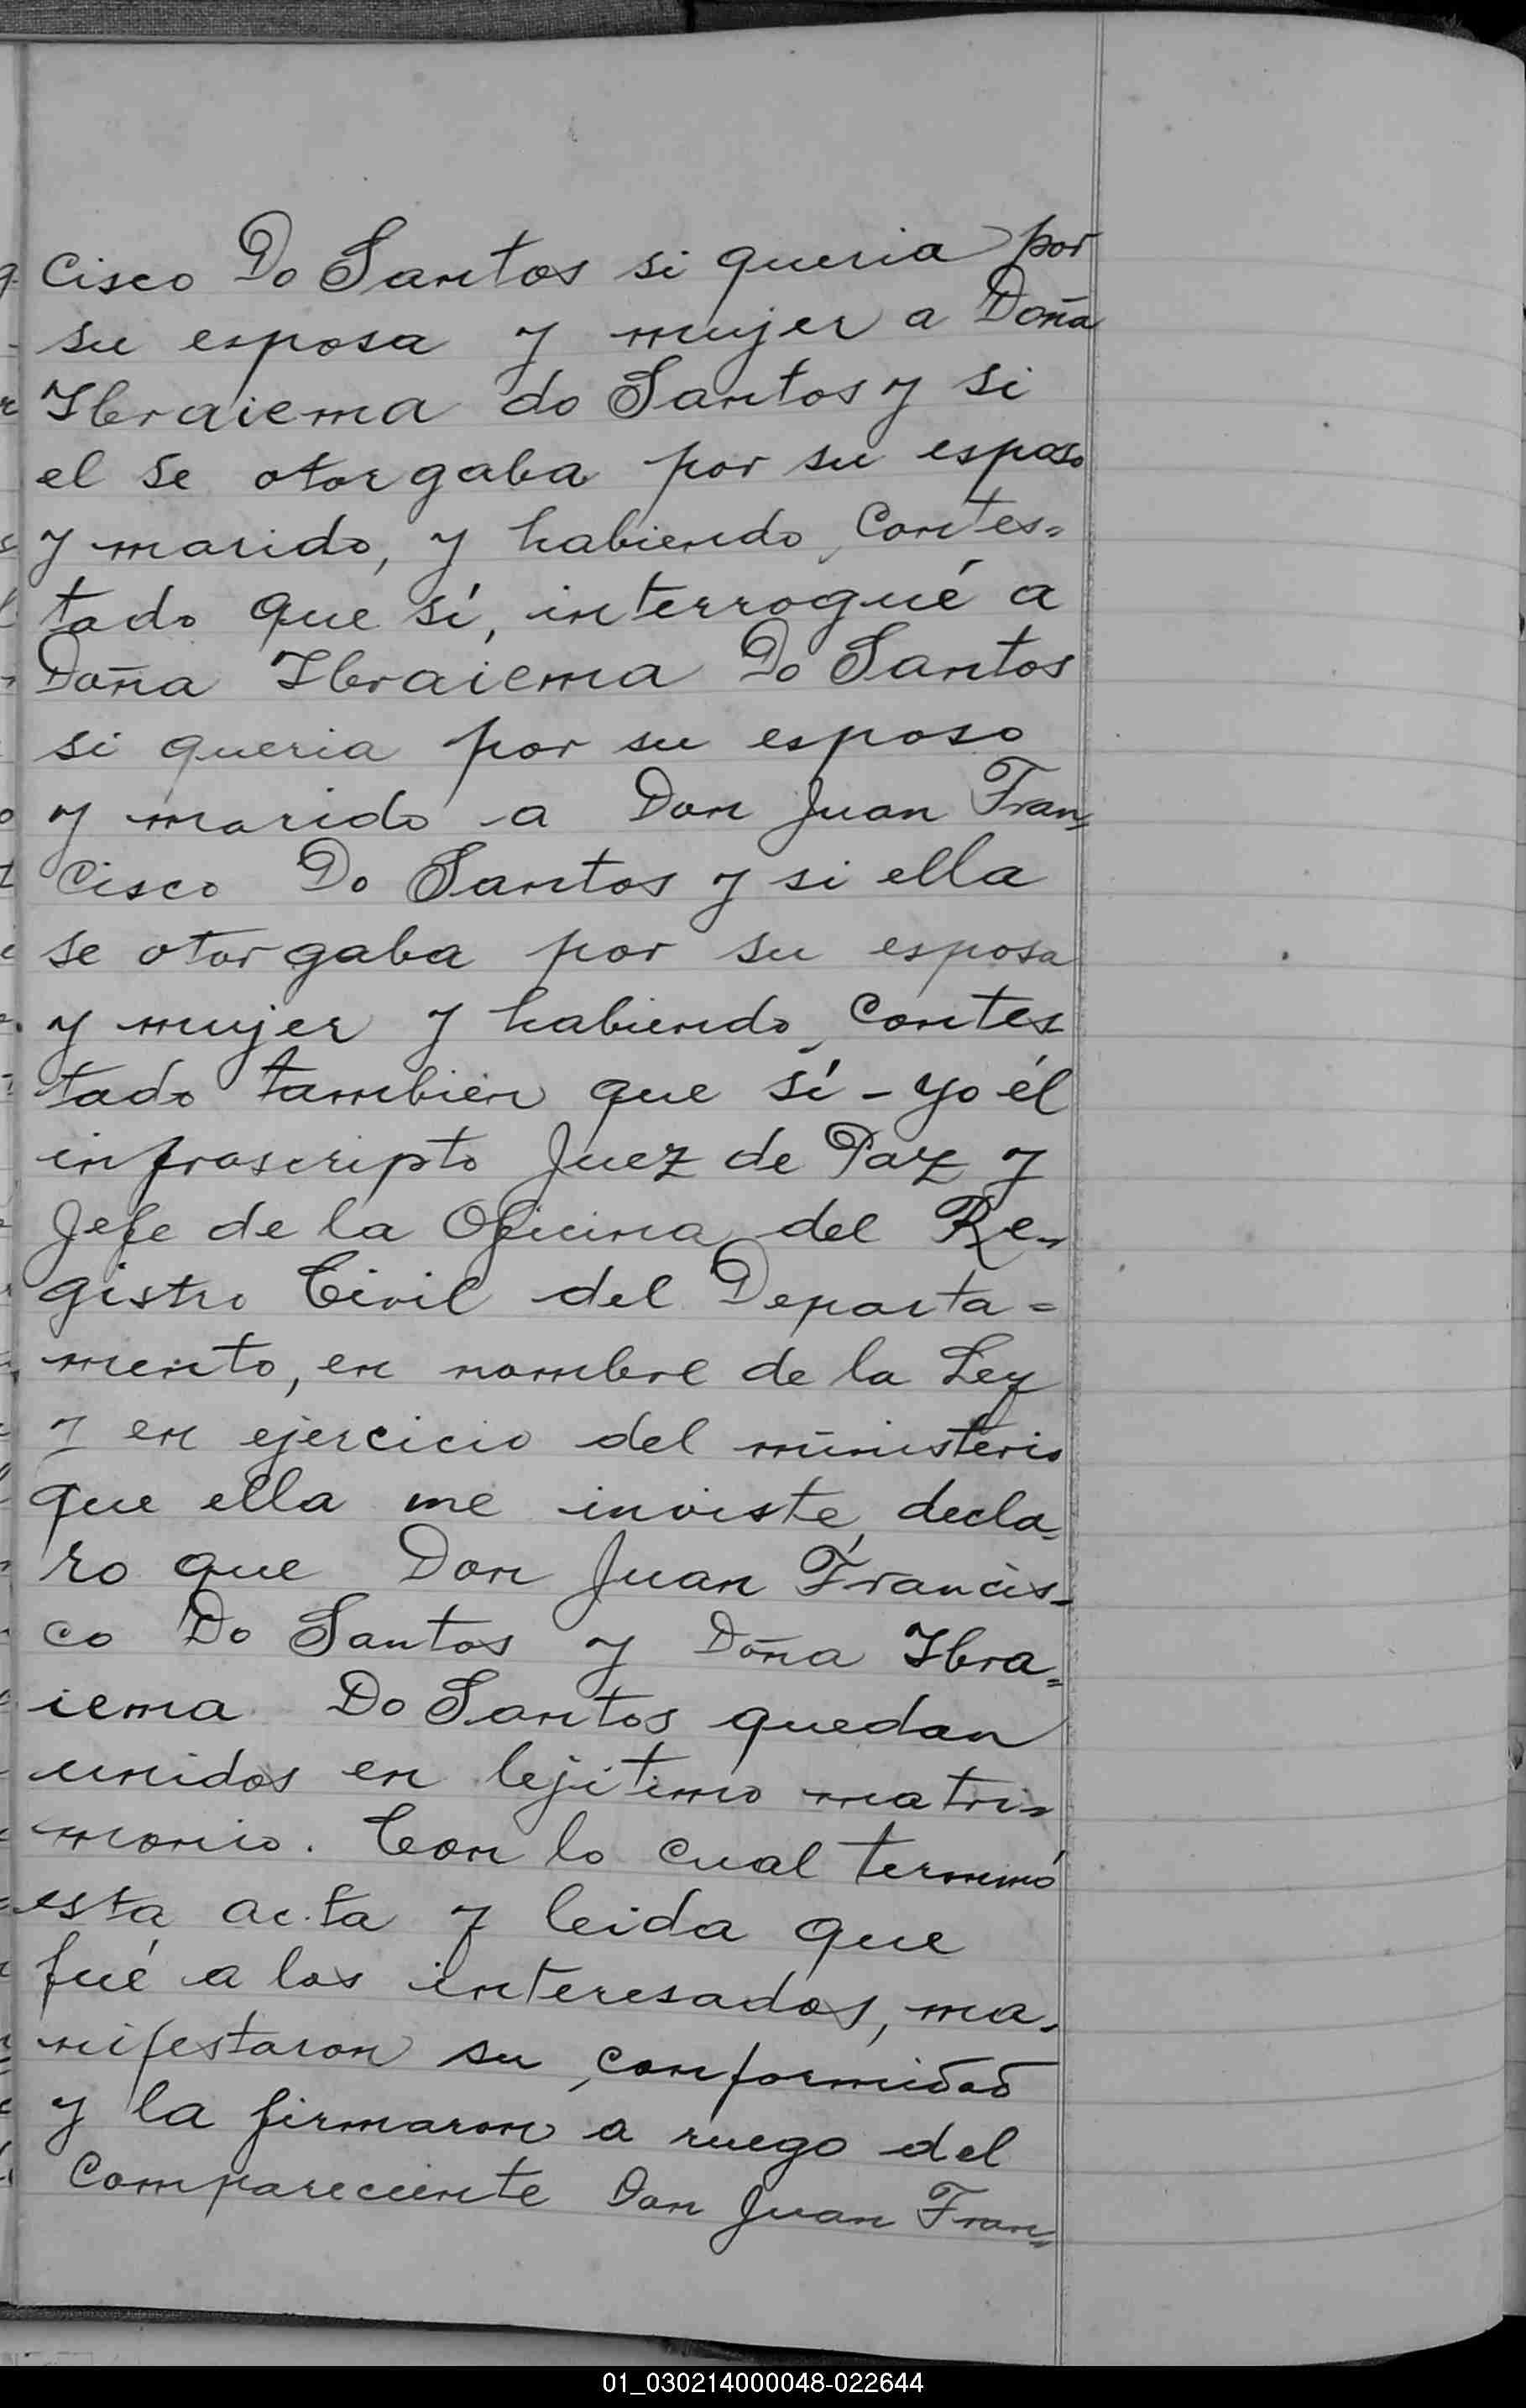 cisco Do Santos si queria por
su esposa y mujer a Doña
Ibraiema do Santos y si
el se otorgaba por su esposo
y marido, y habiendo contes=
tado que sí, interrogué a
Doña Ibraiema Do Santos
si queria por su esposo
y marido a Don Juan Fran=
cisco Do Santos y si ella
se otorgaba por su esposa
y mujer y habiendo contes
tado tambien que sí - yo él
infrascripto Juez de Paz y
Jefe de la Oficina del Re-
gistro Civil del Departa=
mento, en nombre de la Ley
y en ejercicio del ministerio
que ella me inviste, decla=
ro que Don Juan Francis-
co Do Santos y Doña Ibra=
iema Do Santos quedan
unidos en lejitimo matri=
monio. Con lo cual terminó
esta acta y leida que
fué a los interesados, ma-
nifestaron su conformidad
y la firmaron a ruego del
compareciente Don Juan Fran=
01_030214000048-022644